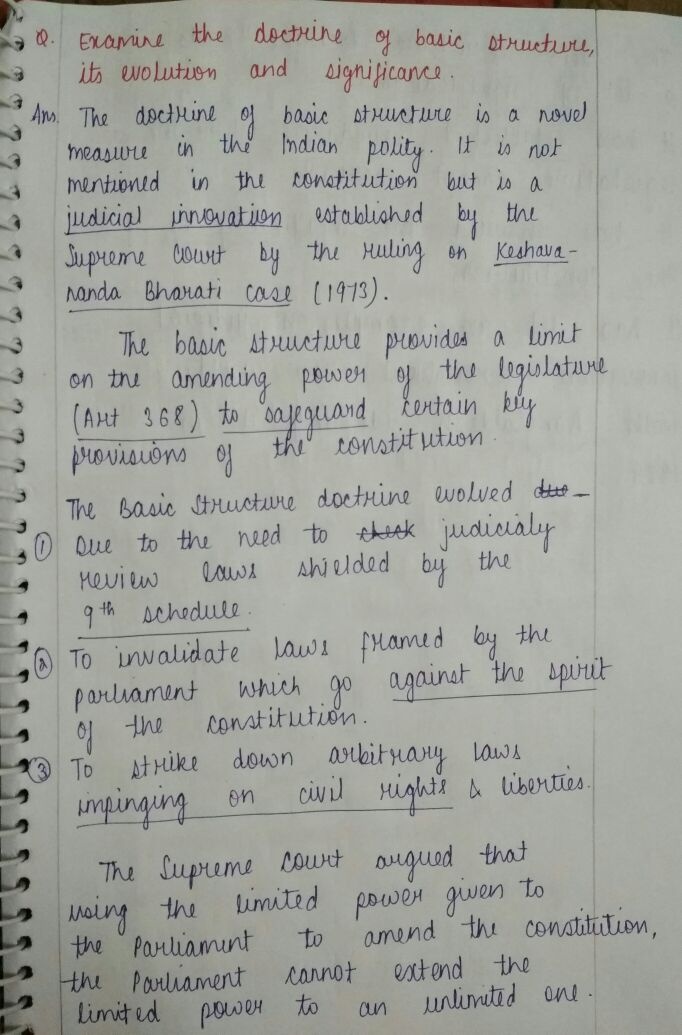 Q. Examine the doctrine of basic structure,
its evolution and significance.
Ans. The doctrine of basic structure is a novel
measure in the Indian polity. It is not
mentioned in the constitution but is a
judicial innovation established by the
Supreme Court by the ruling on Keshava-
nanda Bharati case (1973).
The basic structure provides a limit
on the amending power of the legislature
(Art 368) to safeguard certain key
provisions of the constitution.
The Basic Structure doctrine evolved due -
① Due to the need to check judicialy
review laws shielded by the
9th schedule.
② To invalidate laws framed by the
parliament which go against the spirit
of the constitution.
③ To strike down arbitrary laws
impinging on civil rights & liberties.
The Supreme Court argued that
using the limited power given to
the Parliament to amend the constitution,
the Parliament cannot extend the
limited power to an unlimited one.